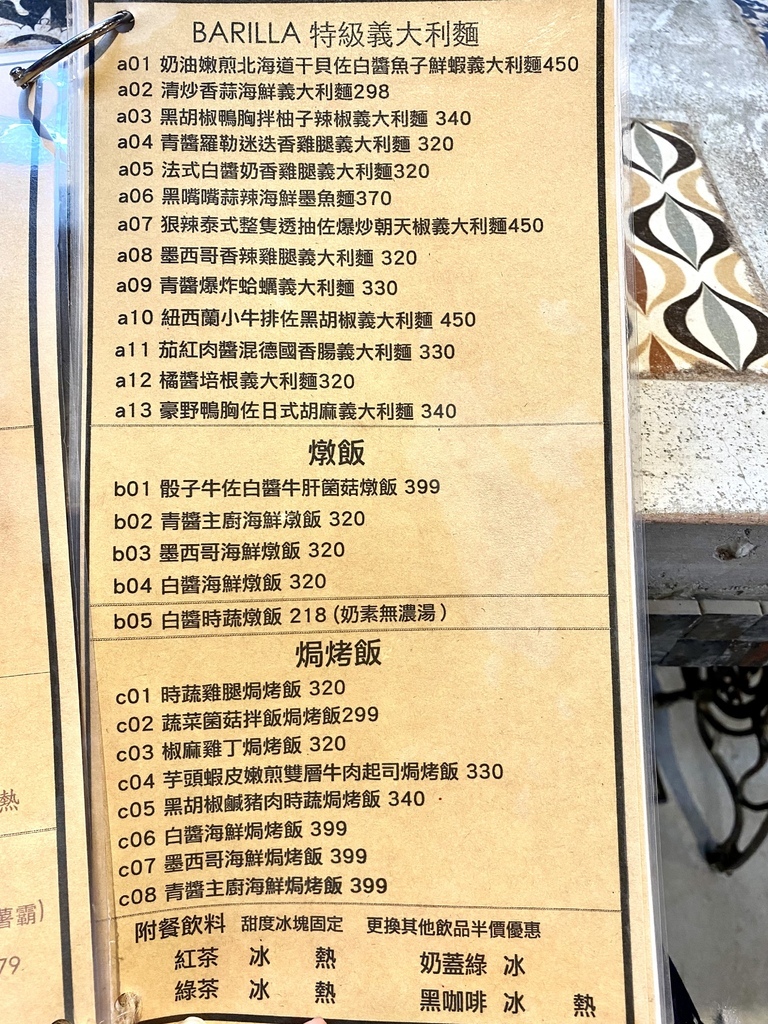 BARILLA 特級義大利麵
a01 奶油嫩煎北海道干貝佐白醬魚子鮮蝦義大利麵450
a02 清炒香蒜海鮮義大利麵298
a03 黑胡椒鴨胸拌柚子辣椒義大利麵 340
a04 青醬羅勒迷迭香雞腿義大利麵 320
a05 法式白醬奶香雞腿義大利麵320
a06 黑嘴嘴蒜辣海鮮墨魚麵370
a07 狠辣泰式整隻透抽佐爆炒朝天椒義大利麵450
a08 墨西哥香辣雞腿義大利麵 320
a09 青醬爆炸蛤蠣義大利麵 330
a10 紐西蘭小牛排佐黑胡椒義大利麵 450
a11 茄紅肉醬混德國香腸義大利麵 330
a12 橘醬培根義大利麵320
a13 豪野鴨胸佐日式胡麻義大利麵 340
燉飯
b01 骰子牛佐白醬牛肝菌菇燉飯 399
b02 青醬主廚海鮮燉飯 320
b03 墨西哥海鮮燉飯 320
b04 白醬海鮮燉飯 320
b05 白醬時蔬燉飯 218 (奶素無濃湯)
焗烤飯
c01 時蔬雞腿焗烤飯 320
c02 蔬菜菌菇拌飯焗烤飯299
c03 椒麻雞丁焗烤飯 320
c04 芋頭蝦皮嫩煎雙層牛肉起司焗烤飯 330
c05 黑胡椒鹹豬肉時蔬焗烤飯 340
c06 白醬海鮮焗烤飯 399
c07 墨西哥海鮮焗烤飯 399
c08 青醬主廚海鮮焗烤飯 399
附餐飲料 甜度冰塊固定 更換其他飲品半價優惠
紅茶 冰 熱 奶蓋綠 冰
綠茶 冰 熱 黑咖啡 冰 熱
熱
薯霸)
79